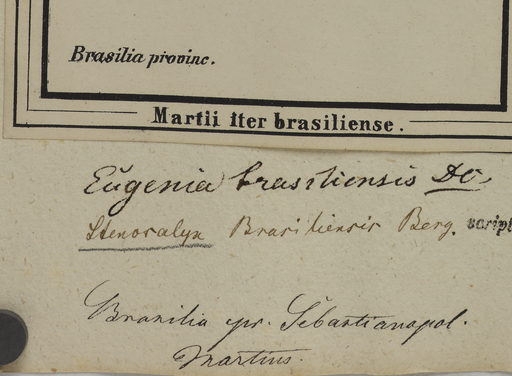 Brasilia provinc.
Martii iter brasiliense.
Eugenia brasiliensis DC.
Stenocalyx Brasiliensis Berg. script
Brasilia pr. Sebastianopol.
Martius.